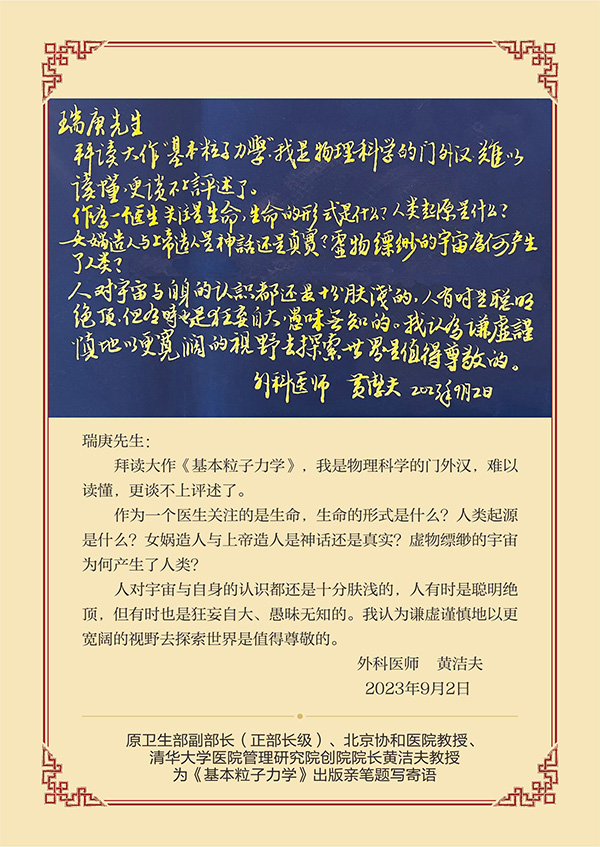 瑞庚先生
拜读大作“基本粒子力學”，我是物理科学的门外汉，难以
读懂，更谈不上評述了。
作为一个医生关注是生命，生命的形式是什么？人类起原是什么？
女娲造人与上帝造人是神話还是真實？虚物缥缈的宇宙为何产生
了人类？
人对宇宙与自身的认識都还是十分肤浅的，人有时是聪明
绝顶，但有時也是狂妄自大，愚味无知的。我认为谦虚謹
慎地以更寬阔的视野去探索世界是值得尊敬的。
外科医师 黄潔夫 2023年9月2日
瑞庚先生：
拜读大作《基本粒子力学》，我是物理科学的门外汉，难以
读懂，更谈不上评述了。
作为一个医生关注的是生命，生命的形式是什么？人类起源
是什么？女娲造人与上帝造人是神话还是真实？虚物缥缈的宇宙
为何产生了人类？
人对宇宙与自身的认识都还是十分肤浅的，人有时是聪明绝
顶，但有时也是狂妄自大、愚昧无知的。我认为谦虚谨慎地以更
宽阔的视野去探索世界是值得尊敬的。
外科医师 黄洁夫
2023年9月2日
原卫生部副部长（正部长级）、北京协和医院教授、
清华大学医院管理研究院创院院长黄洁夫教授
为《基本粒子力学》出版亲笔题写寄语